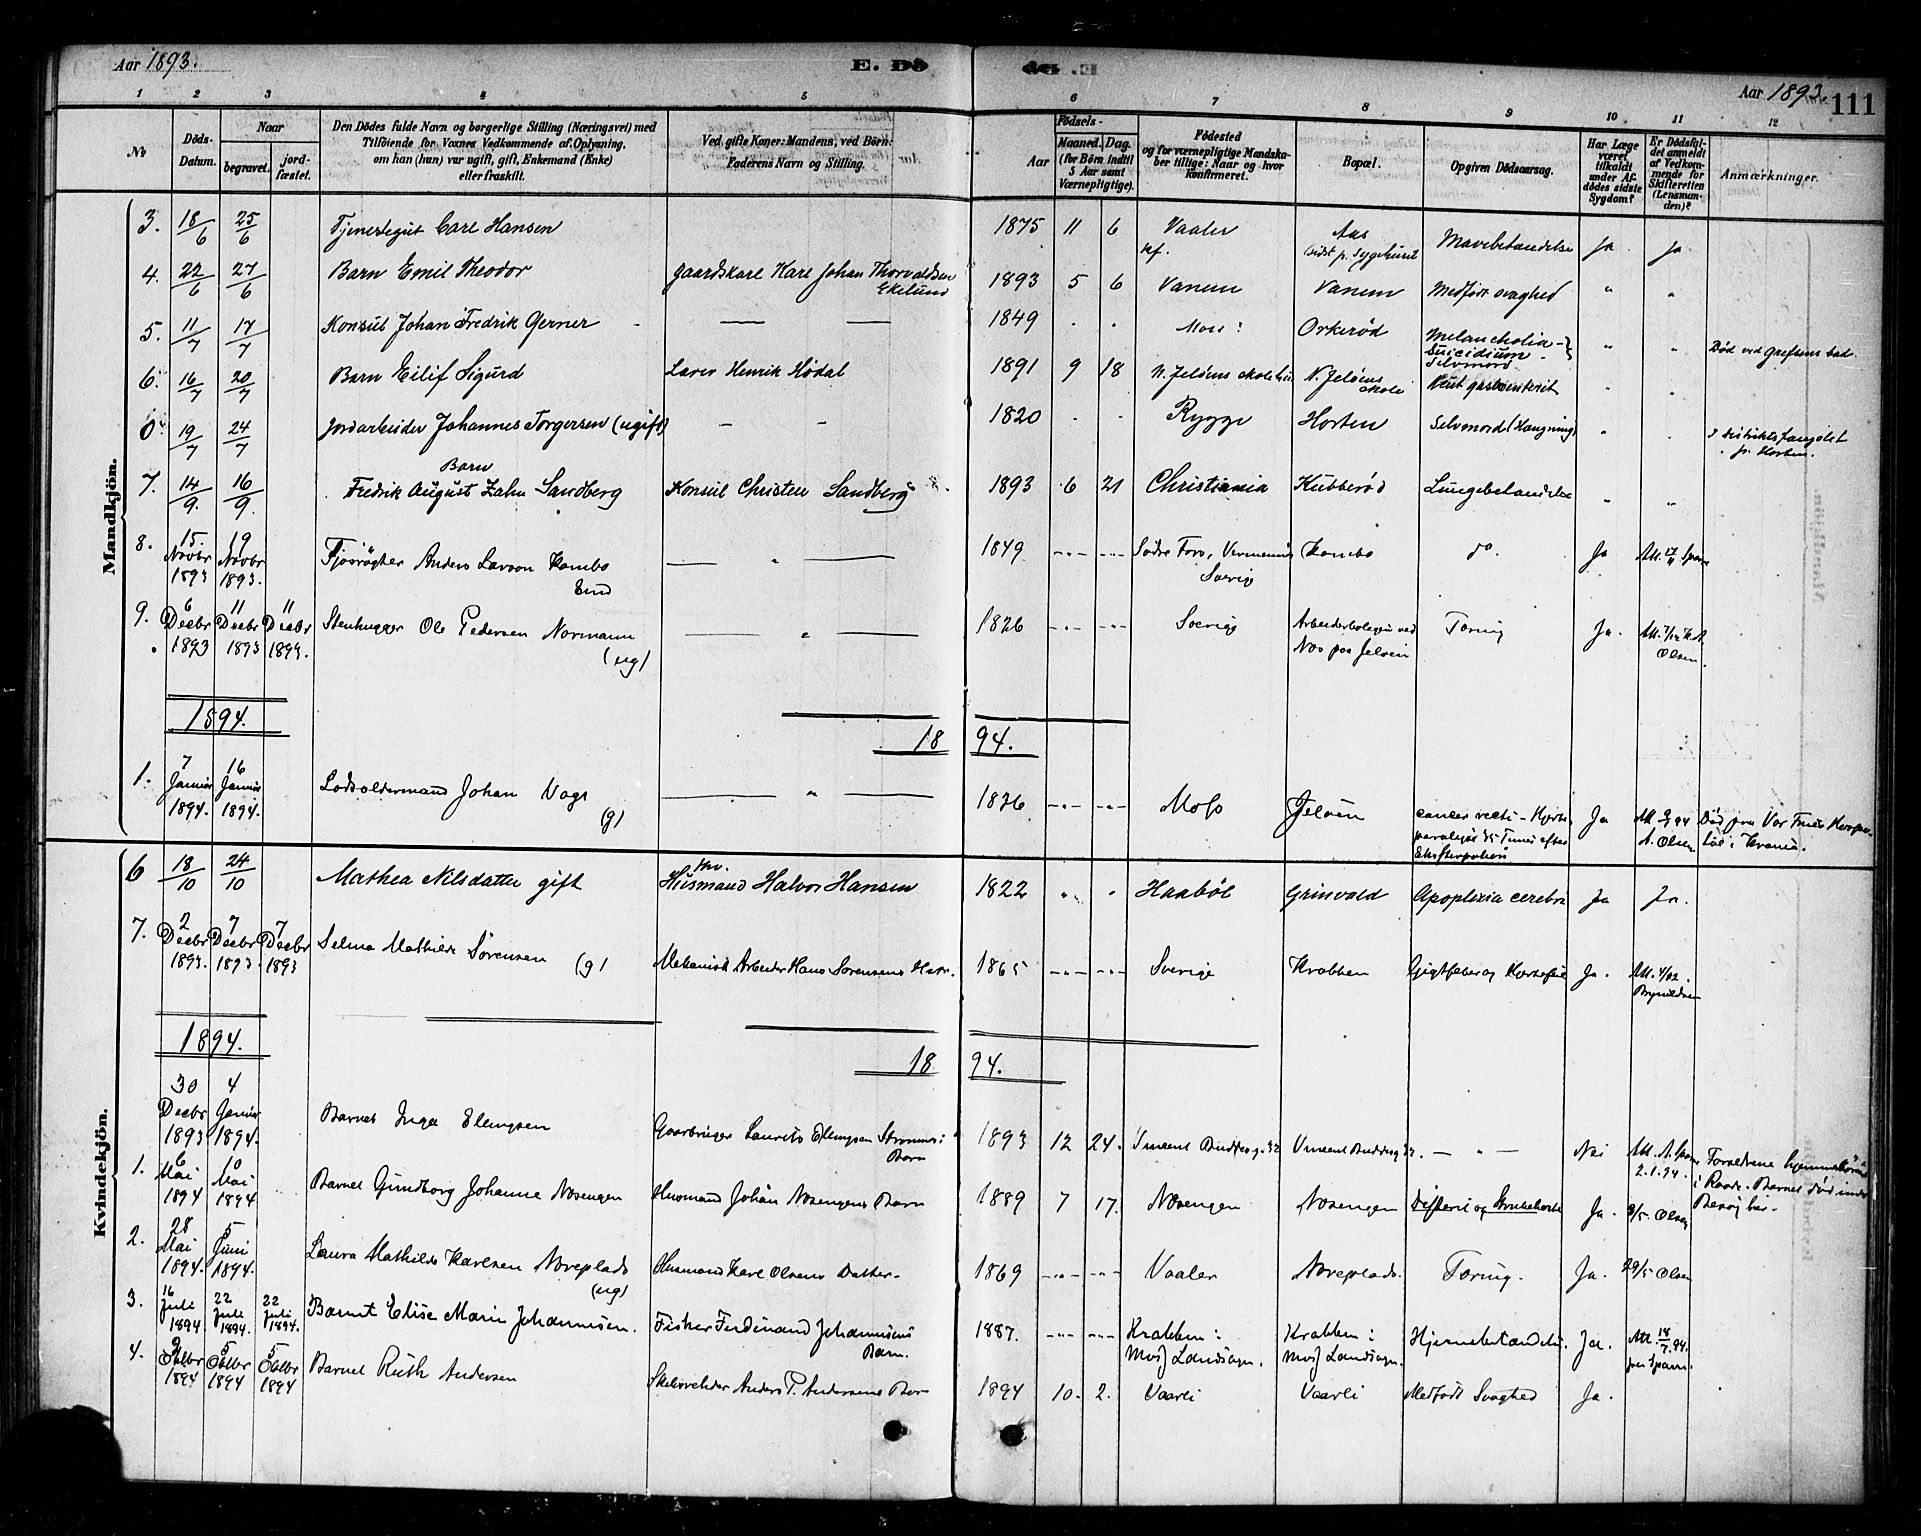 Aar 1893.
E. Dö
Aar 1893. 111
1 2 3 4 5 6 7 8 9 10 11 12
No
Döds-Datum.
Naar
begravet.
jord-fæstet.
Den Dödes fulde Navn og borgerlige Stilling (Næringsvei) med
Tilföiende for Voxnes Vedkommende af Oplysning,
om han (hun) var ugift, gift, Enkemand (Enke)
eller fraskilt.
Ved gifte Koner: Mandens, ved Börn:
Faderens Navn og Stilling.
Födsels-
Aar
Maaned. Dag.
(for Börn indtil
5 Aar samt
Værnepligtige).
Födested
og for værnepligtige Mandska-
ber tillige: Naar og hvor
konfirmeret.
Bopæl.
Opgiven Dödsaarsag.
Har Læge
været
tilkaldt
under Af-
dödes sidste
Sygdom?
Er Dödsfal-
det anmeldt
af Vedkom-
mende for
Skifteretten
(Lensman-
den)?
Anmærkninger.
Mandkjön.
3. 18/6 25/6 Tjenestegut Carl Hansen 1875 11 6 Vaaler kf. Aas sidst p. Sygehuset Mavebetændelse Ja Ja
4. 22/6 27/6 Barn Emil Theodor Gaardskarl Karl Johan Thorvaldsen Ekelund 1893 5 6 Vanem Vanem Medfødt svaghed " "
5. 11/7 17/7 Konsul Johan Fredrik Gerner — — 1849 . . Moss: Orkerød Melancholia - Suicidium - Selvmord " " Død ved Grefsens bad.
6. 16/7 20/7 Barn Eilif Sigurd Lærer Henrik Hødal 1891 9 18 N. Jeløens skolehus N. Jeløens skole Akut gastroenterit " "
0. 19/7 24/7 Jordarbeider Johannes Torgersen (ugift) - - 1820 . . Rygge Horten Selvmord (Hængning) " . I Distriktsfængslet p. Horten.
7. 14/9. 16/9. Barn Fredrik August Zahn Sandberg Konsul Christen Sandberg 1893 6 21 Christiania Kubberød Lungebetændelse " "
8. 15. Novbr 1893 19 Novbr 1893. Fjøsrøgter Anders Larson Kambo Enkd — " — 1849 -"- -"- Södre Fors, Vermeninie Sverig Kambo do. Ja Att. 17/11 Sparre
9. 6 Decbr 1893 11 Decbr 1893 11 Decbr 1893. Stenhugger Ole Pedersen Normann (ug) — " — 1826 -"- -"- Sverige Arbeiderboligen ved Næs paa Jeløen Tæring Ja. Att. 7/12 A. Olsen.
1894.
18 94.
1. 7 Januar 1894. 16 Januar 1894. Lodsoldermand Johan Vogt (g) — " — 1836 -"- -"- Moss Jeløen cancer recti - Hjerteparalyse 35 Timer efter Exstirpation Ja Att. 9/1 94 A. Olsen Død paa Vor Frues Hospital i Krania.
Kvindekjön.
6 18/10 24/10 Mathea Nilsdatter gift fhv. Husmand Halvor Hansen 1822 " " Haabøl Grinvold Apoplexia cerebri Ja Ja.
7. 2 Decbr 1893. 7 Decbr 1893. 7 Decbr 1893 Selma Mathilde Sørensen (g) Mekanisk Arbeider Hans Sørensens Hustr. 1865 -"- -"- Sverige Krabben Gigtfeber og Hjertefeil Ja. Att. 4/12. Brynildsen
1894.
18 94.
30 Decbr 1893 4 Januar 1894. Barnet Inga Elingsen Gaardbruger Laurits Elingsen Strømnes: Barn 1893 12 24. Vincent Buddesg. 32 Vincent Buddesg. 32. — " — Nei Att. A. Sparre 2.1.94. Forældrene hjemmehørende i Raade. Barnet død under Besøg her.
1. 6 Mai 1894 10 Mai 1894 Barnet Gundborg Johanne Nosengen Husmand Johan Nosengens Barn 1889 7 17. Nosengen Nosengen Difteri og Strubehoste Ja. 8/5. Olsen
2. 28 Mai 1894. 5 Juni 1894. Laura Mathilde Karlsen Noreplads (ug) Husmand Karl Olsens Datter. 1869 -"- -"- Vaaler Noreplads. Tæring. Ja. 29/5 Olsen
3. 16 Juli 1894. 22 Juli 1894. 22 Juli 1894. Barnet Elise Marie Johannesen. Fisker Ferdinand Johannesens Barn. 1887. -"- -"- Krabben: Moss Landsogn. Krabben: Moss Landsogn. Hjernebetændelse. Ja. Att. 18/7.94. fra Sparre.
4. 3 Oktbr 1894 5 Oktbr 1894 5 Oktbr 1894 Barnet Ruth Andersen Anders P. Andersens Barn 1894 10. 2. Vaarli Vaarli Medfødt Svaghed Ja.